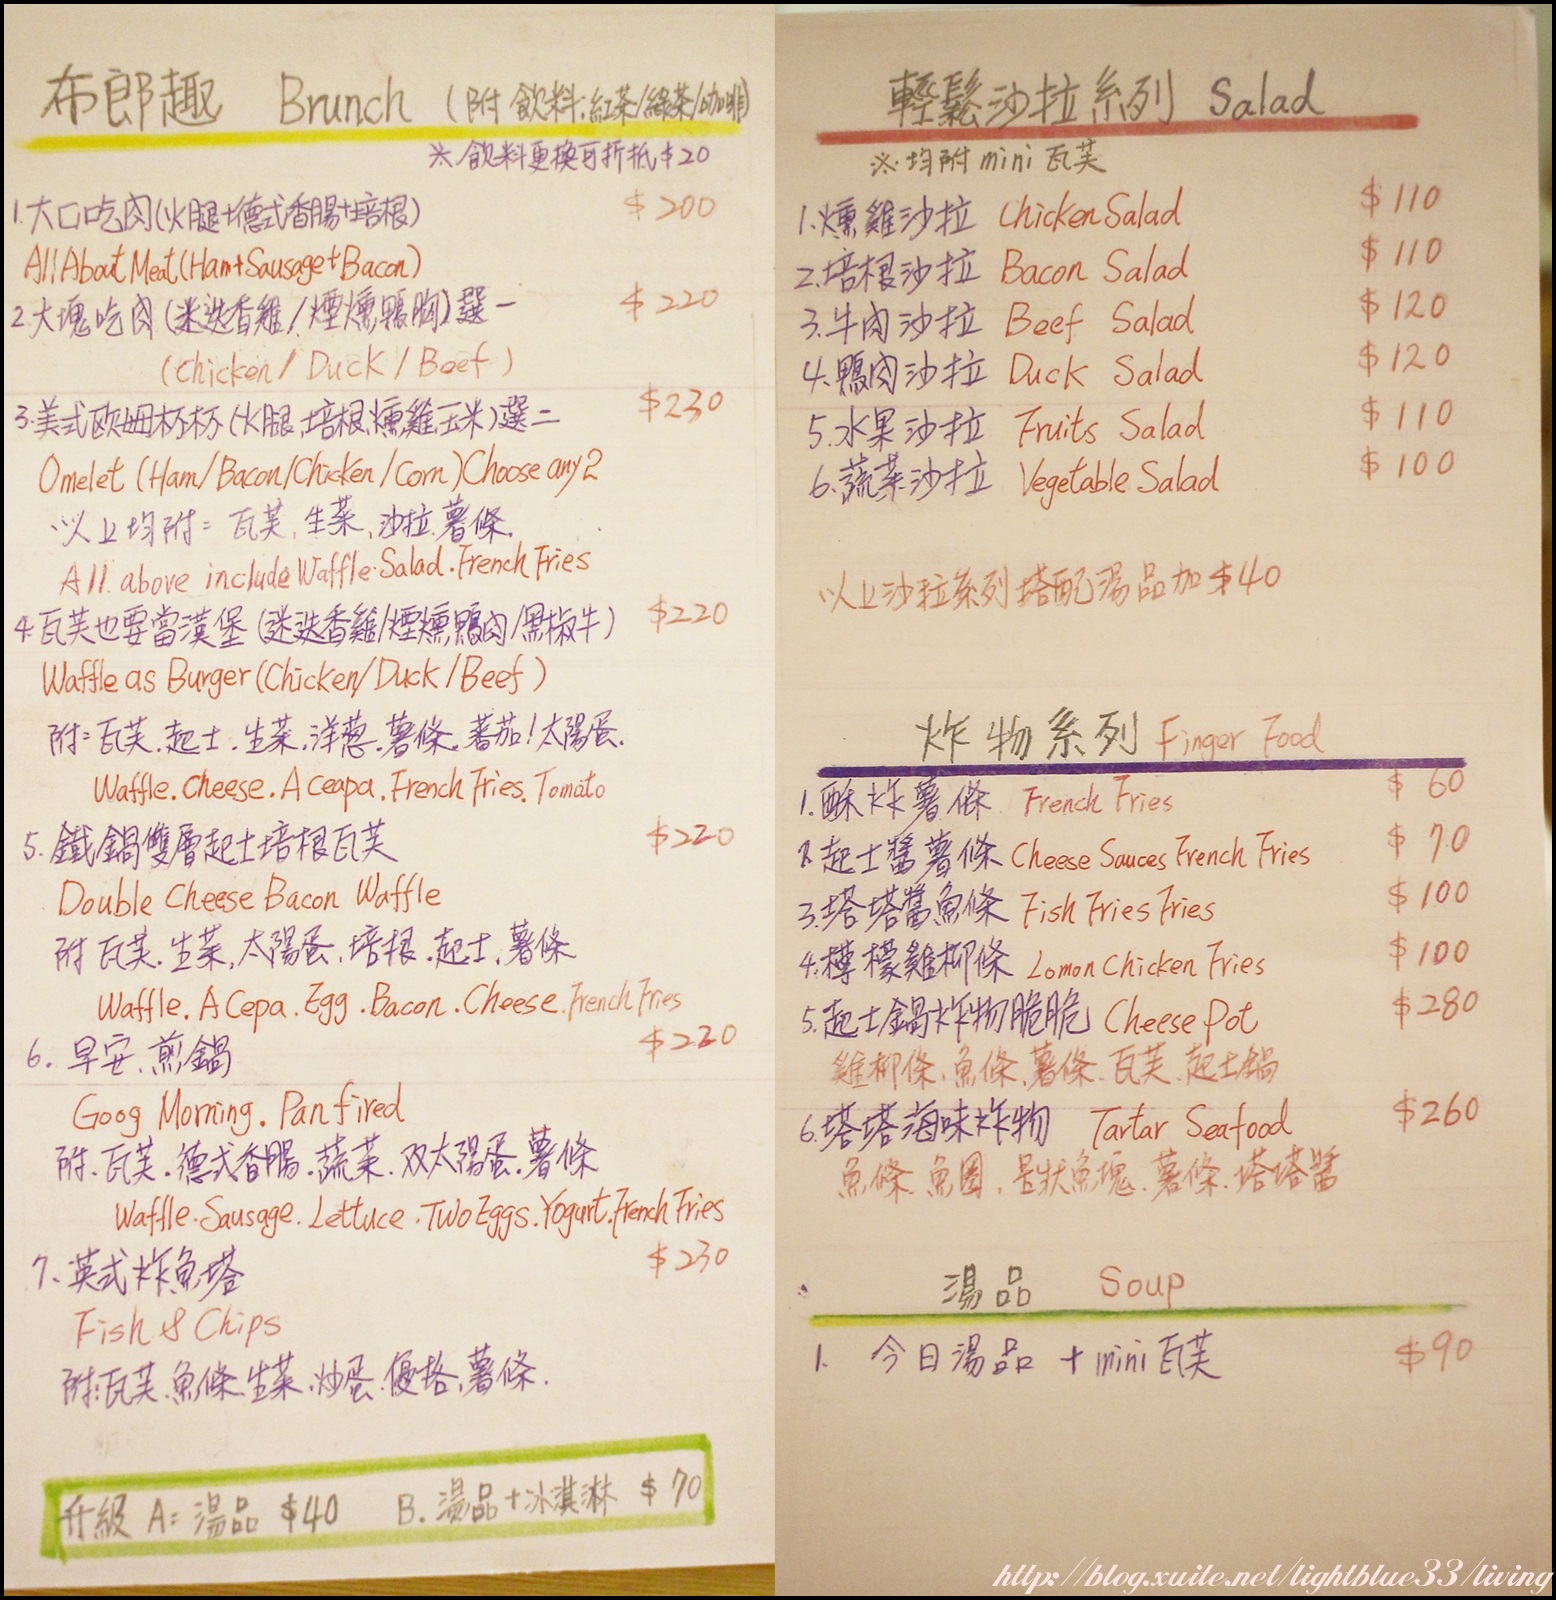 布郎趣 Brunch (附飲料:紅茶/綠茶/咖啡)
※.飲料更換可折抵$20
1.大口吃肉(火腿+德式香腸+培根) $200
All About Meat(Ham+Sausage+Bacon)
2.大塊吃肉(迷迭香雞/煙燻鴨胸)選一 $220
(Chicken/Duck/Beef)
3.美式歐姆杯杯(火腿.培根.燻雞.玉米)選二 $230
Omelet (Ham/Bacon/Chicken/Corn)Choose any 2
以上均附=瓦芙.生菜.沙拉.薯條.
All above include Waffle.Salad.French Fries
4.瓦芙也要當漢堡(迷迭香雞/煙燻鴨肉/黑椒牛) $220
Waffle as Burger(Chicken/Duck/Beef)
附=瓦芙.起士.生菜.洋蔥.薯條.蕃茄!太陽蛋.
Waffle.Cheese.A ceapa.French Fries.Tomato
5.鐵鍋雙層起士培根瓦芙 $220
Double Cheese Bacon Waffle
附 瓦芙.生菜.太陽蛋.培根.起士.薯條
Waffle.A Cepa.Egg.Bacon.Cheese.French Fries
6.早安.煎鍋 $220
Goog Morning.Pan fired
附.瓦芙.德式香腸.蔬菜.双太陽蛋.薯條
Waffle.Sausage.Lettuce.Two Eggs.Yogurt.French Fries
7.英式炸魚塔 $230
Fish & Chips
附:瓦芙.魚條.生菜.炒蛋.優格.薯條.
升級 A=湯品 $40 B.湯品+冰淇淋 $70
輕鬆沙拉系列 Salad
※.均附mini瓦芙
1.燻雞沙拉 Chicken Salad $110
2.培根沙拉 Bacon Salad $110
3.牛肉沙拉 Beef Salad $120
4.鴨肉沙拉 Duck Salad $120
5.水果沙拉 Fruits Salad $110
6.蔬菜沙拉 Vegetable Salad $100
以上沙拉系列搭配湯品加$40
炸物系列 Finger Food
1.酥炸薯條 French Fries $60
2.起士醬薯條 Cheese Sauces French Fries $70
3.塔塔醬魚條 Fish Fries Fries $100
4.檸檬雞柳條 Lomon Chicken Fries $100
5.起士鍋炸物脆脆 Cheese Pot $280
雞柳條.魚條.薯條.瓦芙.起士鍋
6.塔塔海味炸物 Tartar Seafood $260
魚條.魚圈.星狀魚塊.薯條.塔塔醬
湯品 Soup
1. 今日湯品+mini瓦芙 $90
http://blog.xuite.net/lightblue33/living